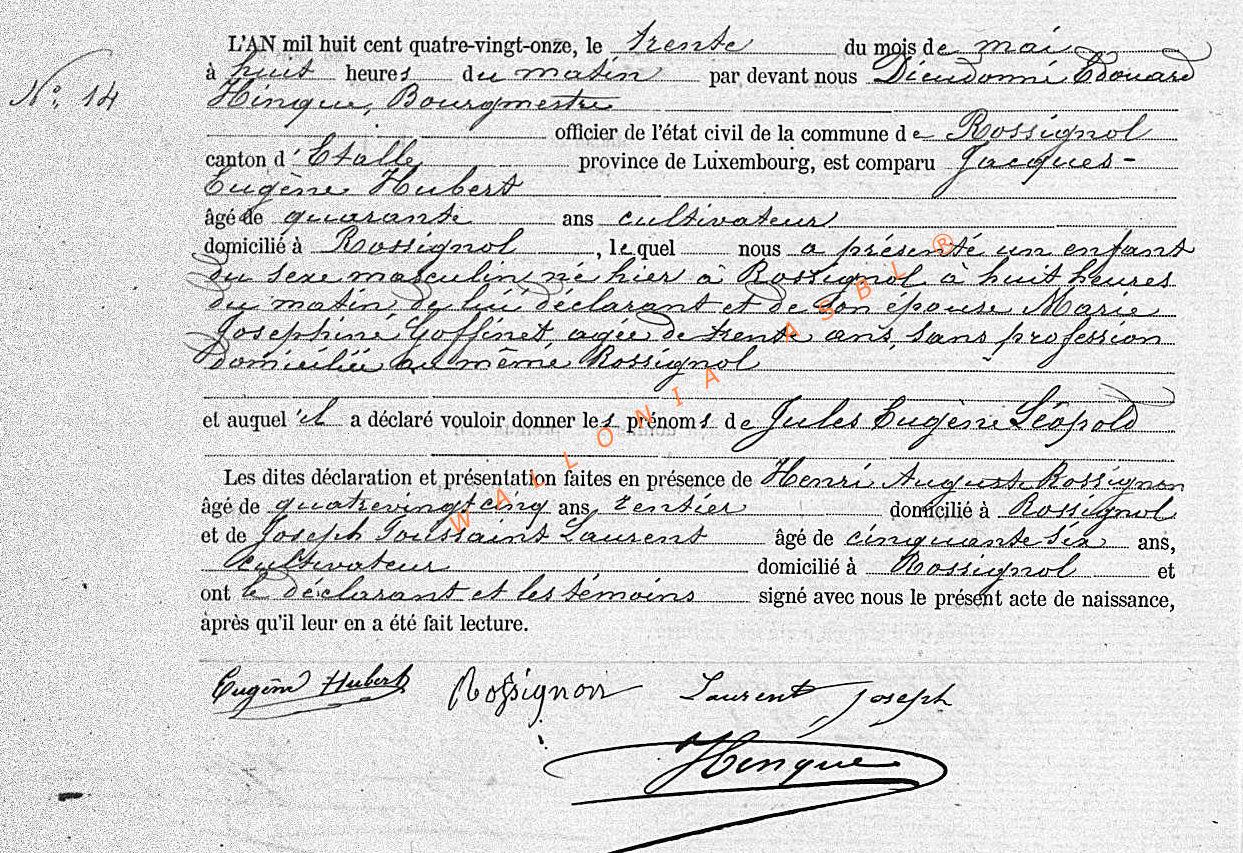 L'AN mil huit cent quatre-vingt-onze, le trente du mois de mai
à huit heures du matin par devant nous Dieudonné Edouard
N° 14
Hinque, Bourgmestre
officier de l'état civil de la commune de Rossignol
canton d'Etalle province de Luxembourg, est comparu Jacques-
Eugène Hubert
âgé de quarante ans cultivateur
domicilié à Rossignol, lequel nous a présenté un enfant
du sexe masculin, né hier à Rossignol à huit heures
du matin, de lui déclarant et de son épouse Marie
Josephine Goffinet, agée de trente ans, sans profession
domiciliée au même Rossignol
et auquel il a déclaré vouloir donner les prénoms de Jules Eugène Léopold
Les dites déclaration et présentation faites en présence de Henri Auguste Rossignon
âgé de quatrevingt cinq ans rentier domicilié à Rossignol
et de Joseph Toussaint Laurent âgé de cinquante six ans,
cultivateur domicilié à Rossignol et
ont le déclarant et les témoins signé avec nous le présent acte de naissance,
après qu'il leur en a été fait lecture.
Eugène Hubert Rossignon Laurent Joseph
Hinque
WALLONIA ASBL ®